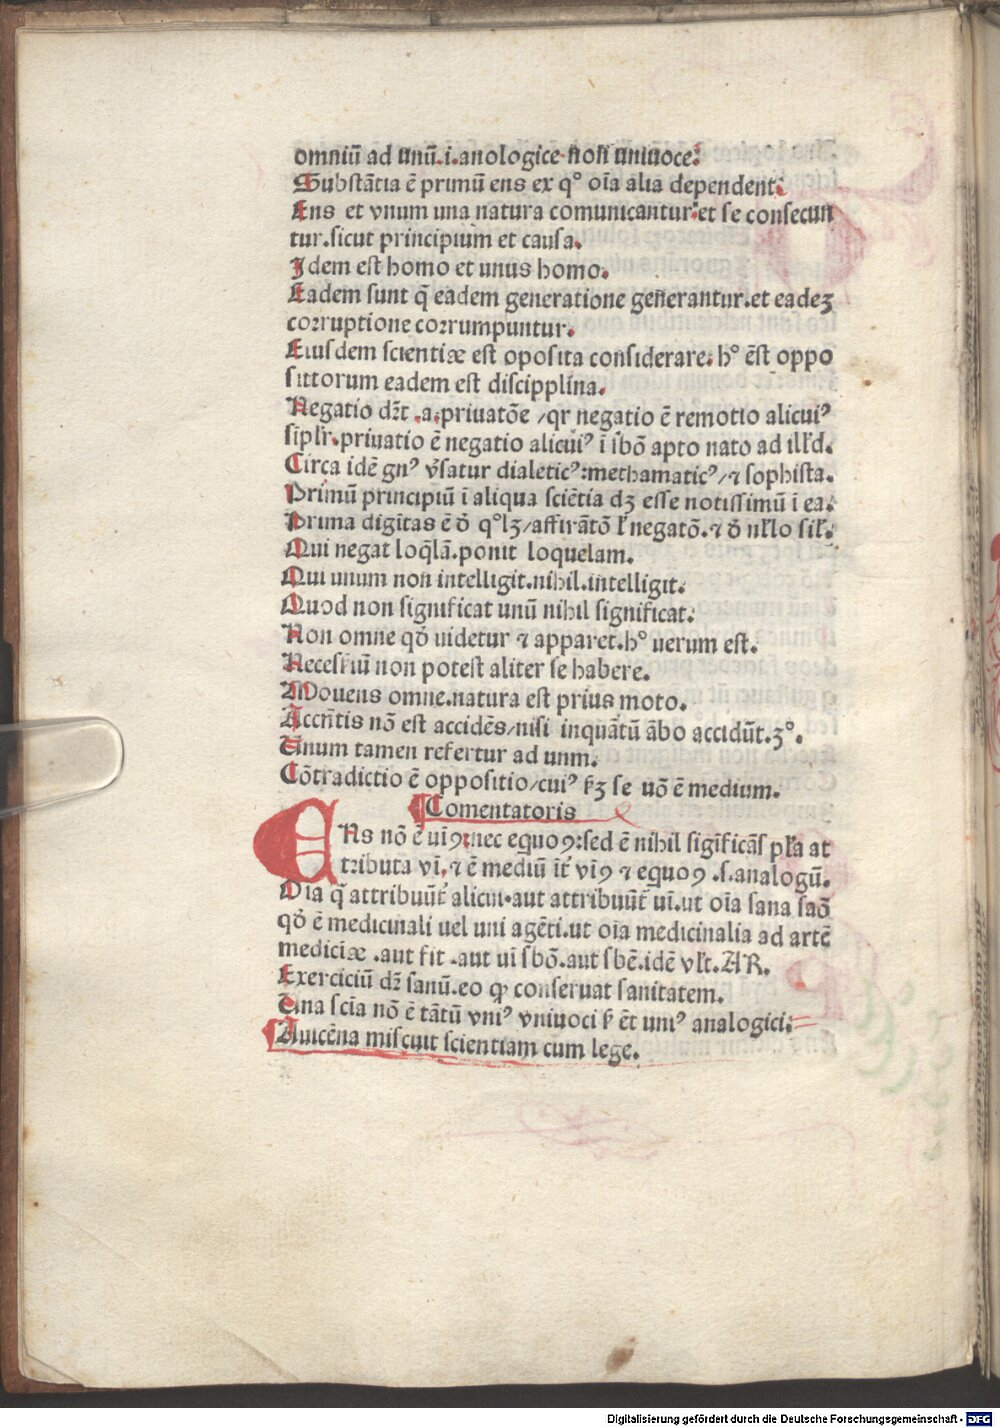 omniū ad unū.i.anologice non uniuoce.
Substātia ē primū ens ex q° oīa alia dependent.
Ens et vnum una natura comunicantur et se consecun
tur.sicut principium et causa.
Idem est homo et unus homo.
Eadem sunt q̄ eadem generatione generantur.et eadeʒ
corruptione corrumpuntur.
Eiusdem scientiæ est oposita considerare. h° ēst oppo
sittorum eadem est discipplina.
Negatio dr̄t .a.priuatōe /qr negatio ē remotio alicuiꝰ
siplr̄.priuatio ē negatio alicuiꝰ ī sbō apto nato ad illd̄.
Circa idē gnꝰ v̄satur dialeticꝰ:methamaticꝰ/⁊ sophista.
Primū principiū ī aliqua sciētia dʒ esse notissimū ī ea.
Prima digītas ē ō q°lʒ/affirātō ł negatō.⁊ ō nłlo sił.
Qui negat loq̄lā.ponit loquelam.
Qui unum non intelligit.nihil.intelligit.
Quod non significat unū nihil significat.
Non omne qō uidetur ⁊ apparet.h° uerum est.
Necesꝭiū non potest aliter se habere.
Mouens omne.natura est prius moto.
Accn̄tis nō est accidēs/nisi inquātū ābo accidūt.ʒ°.
Unum tamen refertur ad unm.
Cōtradictio ē oppositio/cuiꝰ ꝭʒ se uō ē medium.
Comentatoris
ENs nō ē uīꝯ nec equoꝯ:sed ē nihil sigīficās pła at
tributa vī.⁊ ē mediū īt̄ vīꝯ ⁊ equoꝯ .s.analogū.
Oia q̄ attribuūt̄ alicui.aut attribuūt̄ uī.ut oīa sana saō
qō ē medicinali uel uni agēti.ut oīa medicinalia ad artē
mediciæ .aut fit .aut uī sbō.aut sbē.idē vłt.AR.
Exerciciū dʒ sanū.eo ꝙ conseruat sanitatem.
Una scīa nō ē tātū vniꝰ vniuoci ꝭ ēt uniꝰ analogici.
Auicēna miscuit scientiam cum lege.
Digitalisierung gefördert durch die Deutsche Forschungsgemeinschaft - DFG